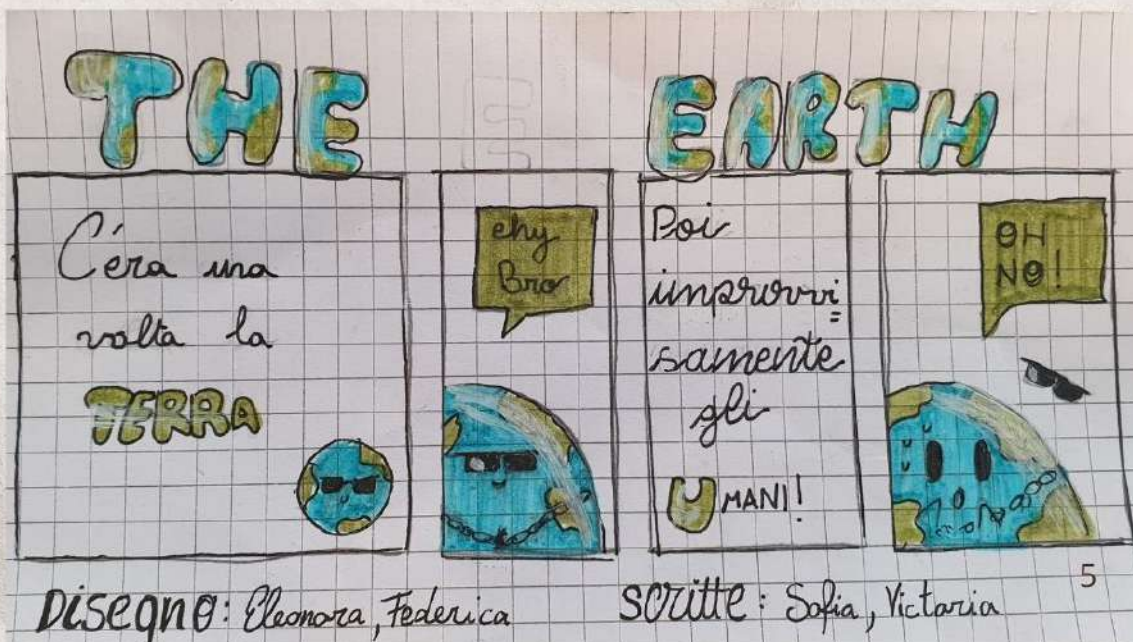 THE EARTH
C'éra una
volta la
TERRA
ehy
Bro
Poi
improvvi=
samente
gli
UMANI!
OH
NO!
5
Disegno: Eleonora, Federica
scritte: Sofia, Victoria